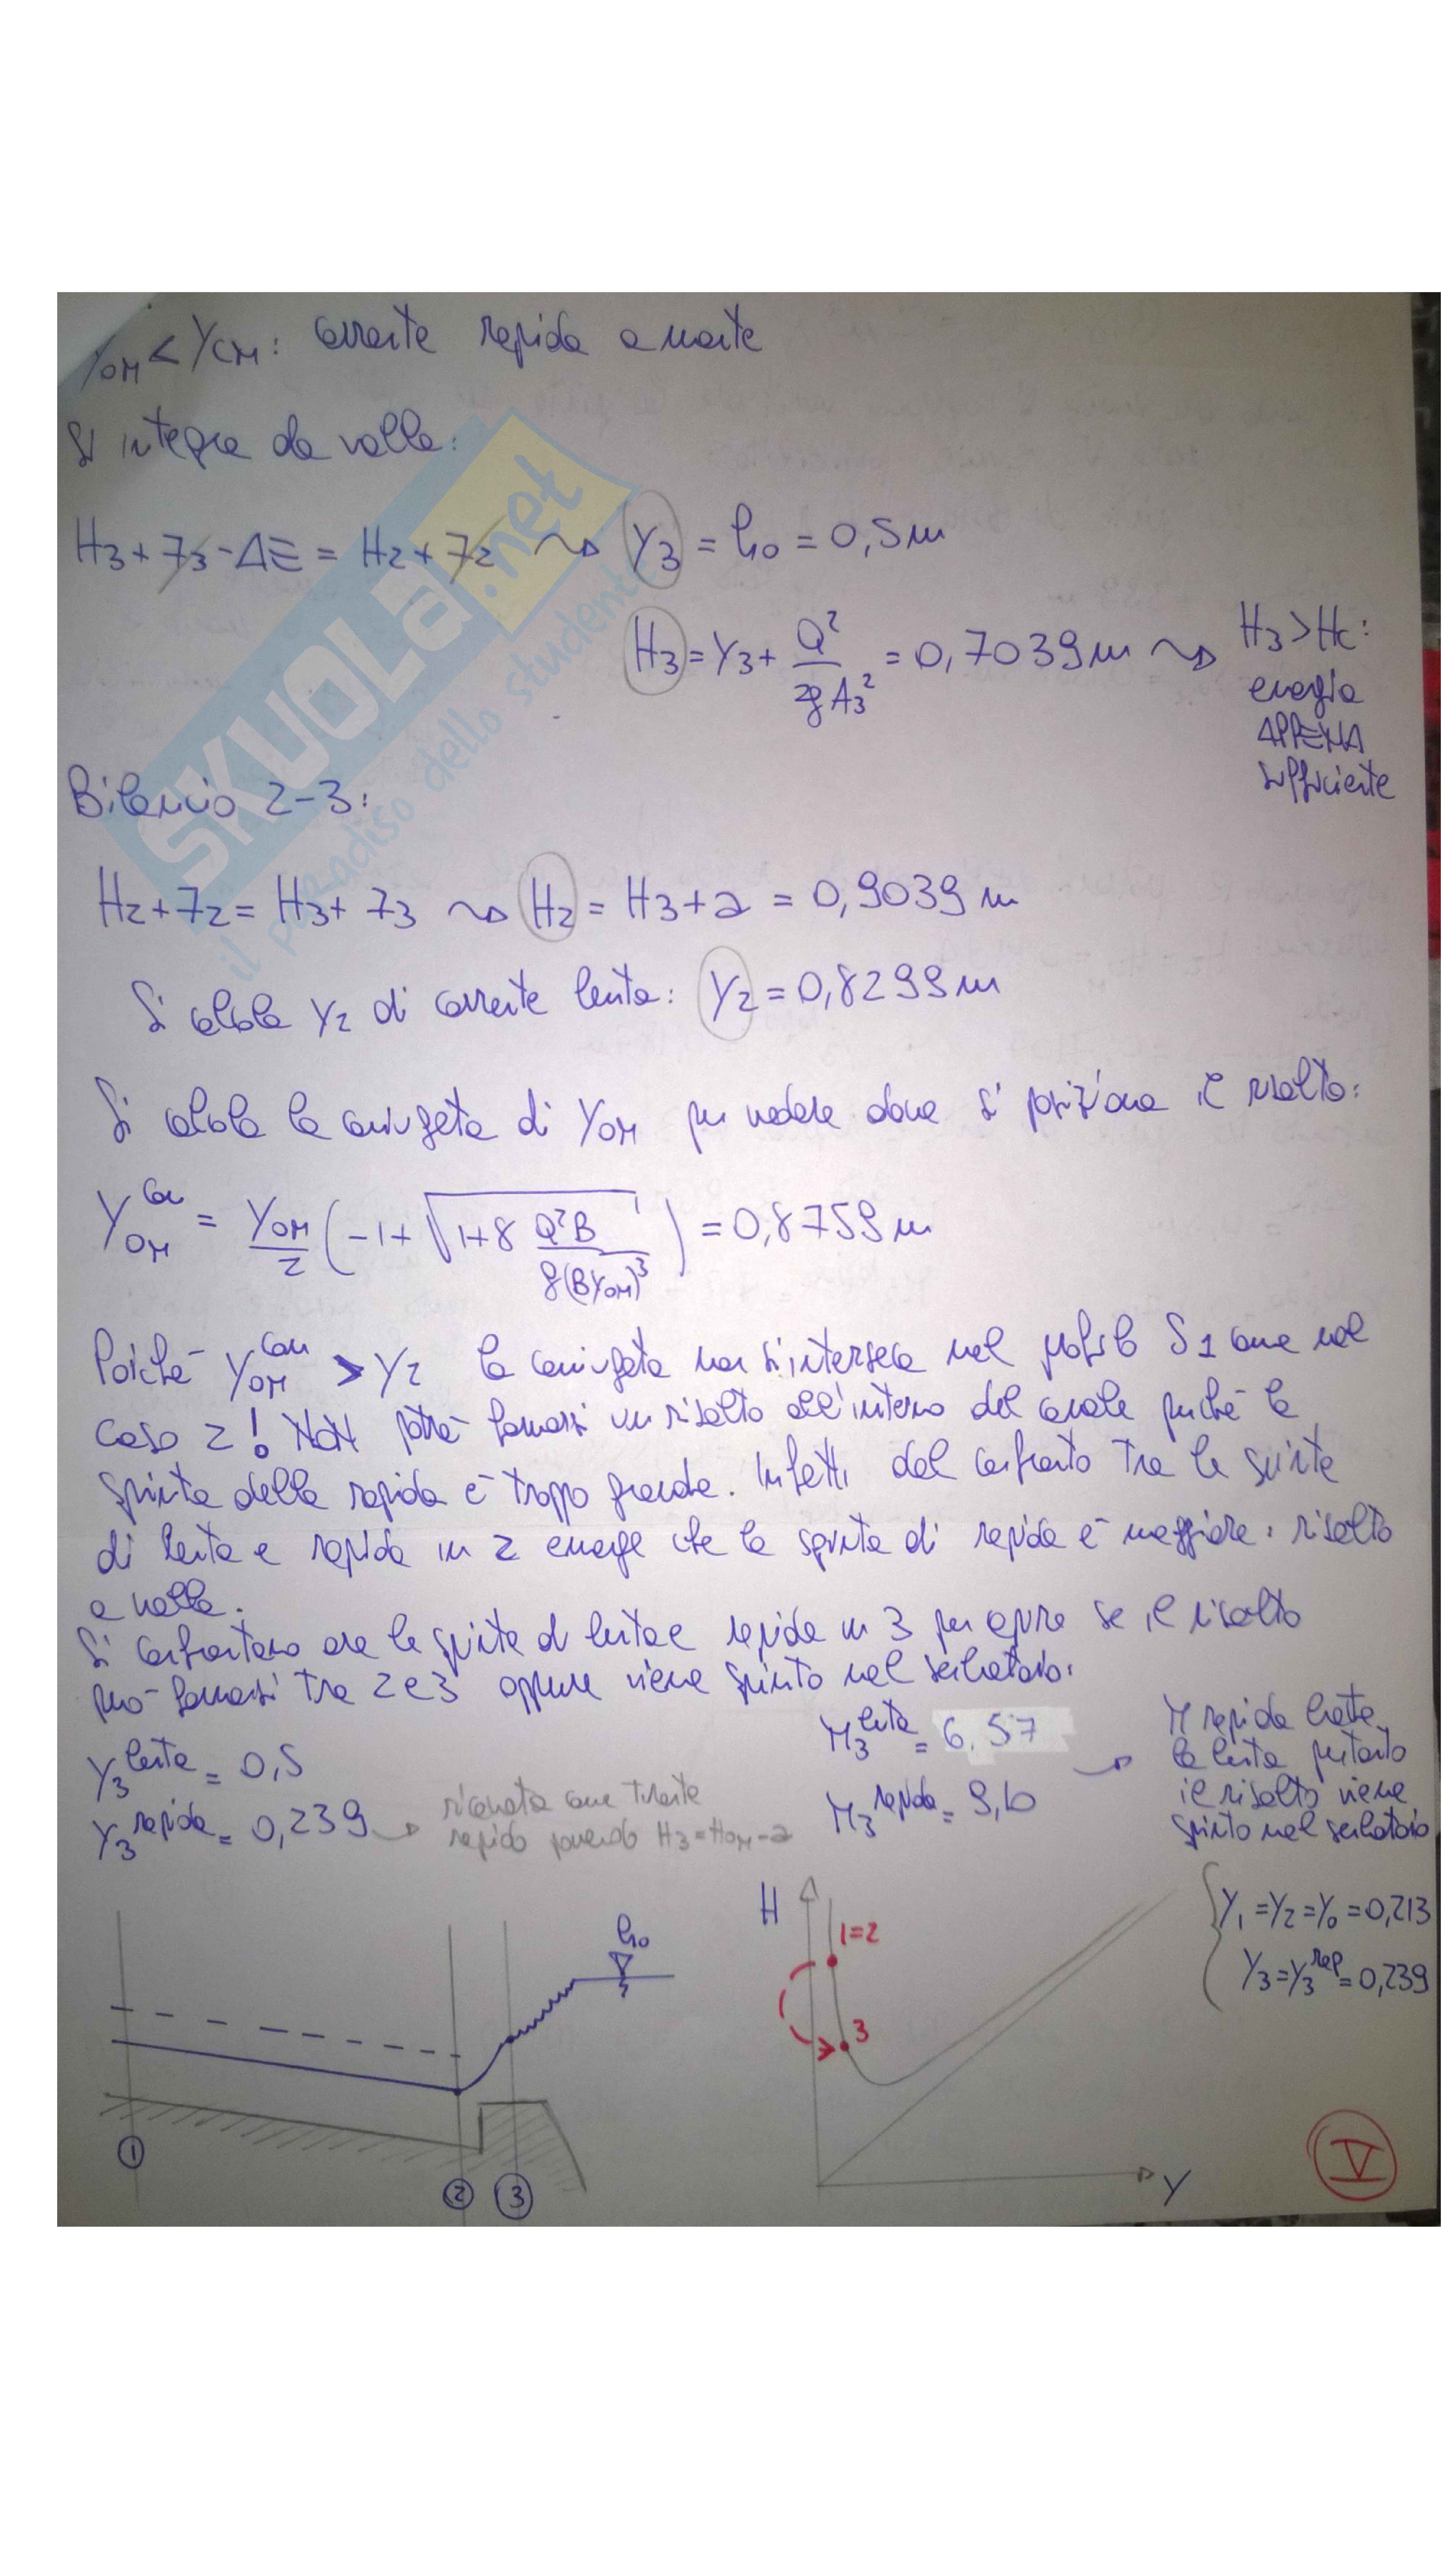 Y0M < YCM: corrente rapida a monte
Si integra da valle:
H3 + z3 - ΔE = H2 + z2 ⇝ Y3 = h0 = 0,5 m
H3 = Y3 + Q²/2gA3² = 0,7039 m ⇝ H3 > Hc:
energia
APPENA
sufficiente
Bilancio 2-3:
H2 + z2 = H3 + z3 ⇝ H2 = H3 + a = 0,9039 m
Si calcola Y2 di corrente lenta: Y2 = 0,8299 m
Si calcola la coniugata di Y0M per vedere dove si posiziona il risalto:
Y0M^con = Y0M/2 (-1 + √(1+8 Q²B/g(BY0M)³)) = 0,8759 m
Poiché Y0M^con > Y2 la coniugata non si interseca nel profilo S1 come nel
caso 2! NON potrà formarsi un risalto all'interno del canale perché la
spinta della rapida è troppo grande. Infatti dal confronto tra le spinte
di lenta e rapida in 2 emerge che la spinta di rapida è maggiore: risalto
a valle.
Si confrontano ora le spinte di lenta e rapida in 3 per capire se il risalto
può formarsi tra 2 e 3 oppure viene spinto nel serbatoio:
Y3^lenta = 0,5
M3^lenta = 6,57
Y3^rapida = 0,239 → ricavata come tirante
rapido ponendo H3 = H0M - a
M3^rapida = 9,10
→ M rapida batte
la lenta pertanto
il risalto viene
spinto nel serbatoio
{ Y1 = Y2 = Y0 = 0,213
Y3 = Y3^rap = 0,239
h0
H
1=2
3
Y
1
2
3
V
SKUOLA.net
il paradiso dello studente